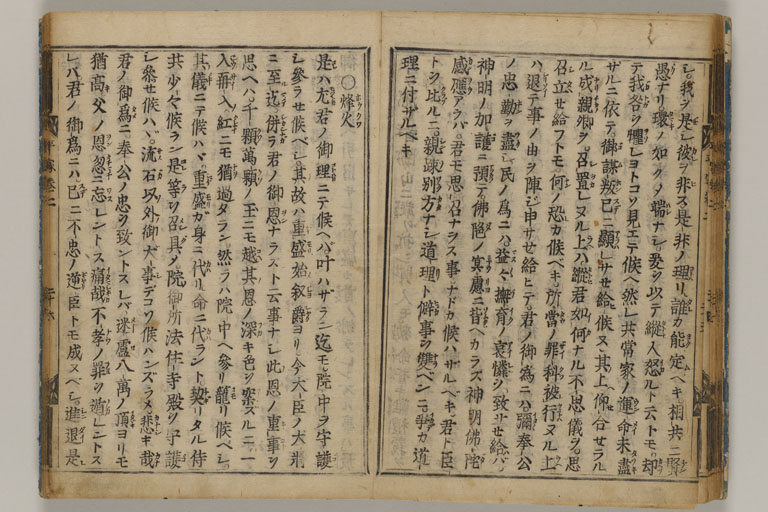 シ。我ヲ是シ彼ヲ非ス是非ノ理リ誰カ能定ヘキ相共ニ賢
愚ナリ環ノ如クノ端ナシ。爰ヲ以テ縦人怒ルト云トモ却
テ我咎ヲ懼レヨトコソ見エテ候ヘ然レ共當家ノ運命未盡
サルニ依テ御謀叛已ニ顕レサセ給候又其上仰合セラル
ル成親卿ヲ。召置レヌル上ハ縦君如何ナル不思儀ヲ。思
召立セ給フトモ。何ノ恐カ候ヘキ。所當ノ罪科被行ヌル上
ハ退テ事ノ由ヲ陳ジ申サセ給ヒテ君ノ御為ニハ彌奉公
ノ忠勤ヲ盡シ。民ノ為ニハ益々撫育ノ哀憐ヲ致サセ給バ
神明ノ加護ニ預テ佛陀ノ冥慮ニ背ヘカラス神明佛陀
感應アラバ。君モ思召ナヲス事ナドカ候ハサルヘキ。君ト臣
トヲ比ルニ。親疎別方ナシ道理ト僻事ヲ雙ヘンニ。爭カ道
理ニ付サルヘキ
〇烽火
是ハ尤君ノ御理ニテ候ヘバ叶ハサラン迄モ院中ヲ守護
シ參ラセ候ヘシ。其故ハ重盛始叙爵ヨリ今大臣ノ大將
ニ至迄併ラ君ノ御恩ナラスト云事ナシ此恩ノ重事ヲ
思ヘハ千顆萬顆ノ玉ニモ越其恩ノ深キ色ヲ案ズルニ。一
入再入ノ紅ニモ猶過タラン。然ラハ院中ヘ參リ籠リ候ヘシ。
其儀ニテ候ハヽ重盛カ身ニ代リ命ニ代ラント契リタル侍
共少々候ラン是等ヲ召具メ院御所法住寺殿ヲ守護
シ參セ候ハヽ。流石以外御大事デコソ候ハンズラメ悲キ哉
君ノ御為ニ奉公ノ忠ヲ致ントスレバ迷盧八萬ノ頂ヨリモ
猶高父ノ恩忽ニ忘レントス痛哉不孝ノ罪ヲ遁レントス
レバ君ノ御為ニハ已ニ不忠ノ逆臣トモ成ヌベシ。進退是
平家巻二
二十六